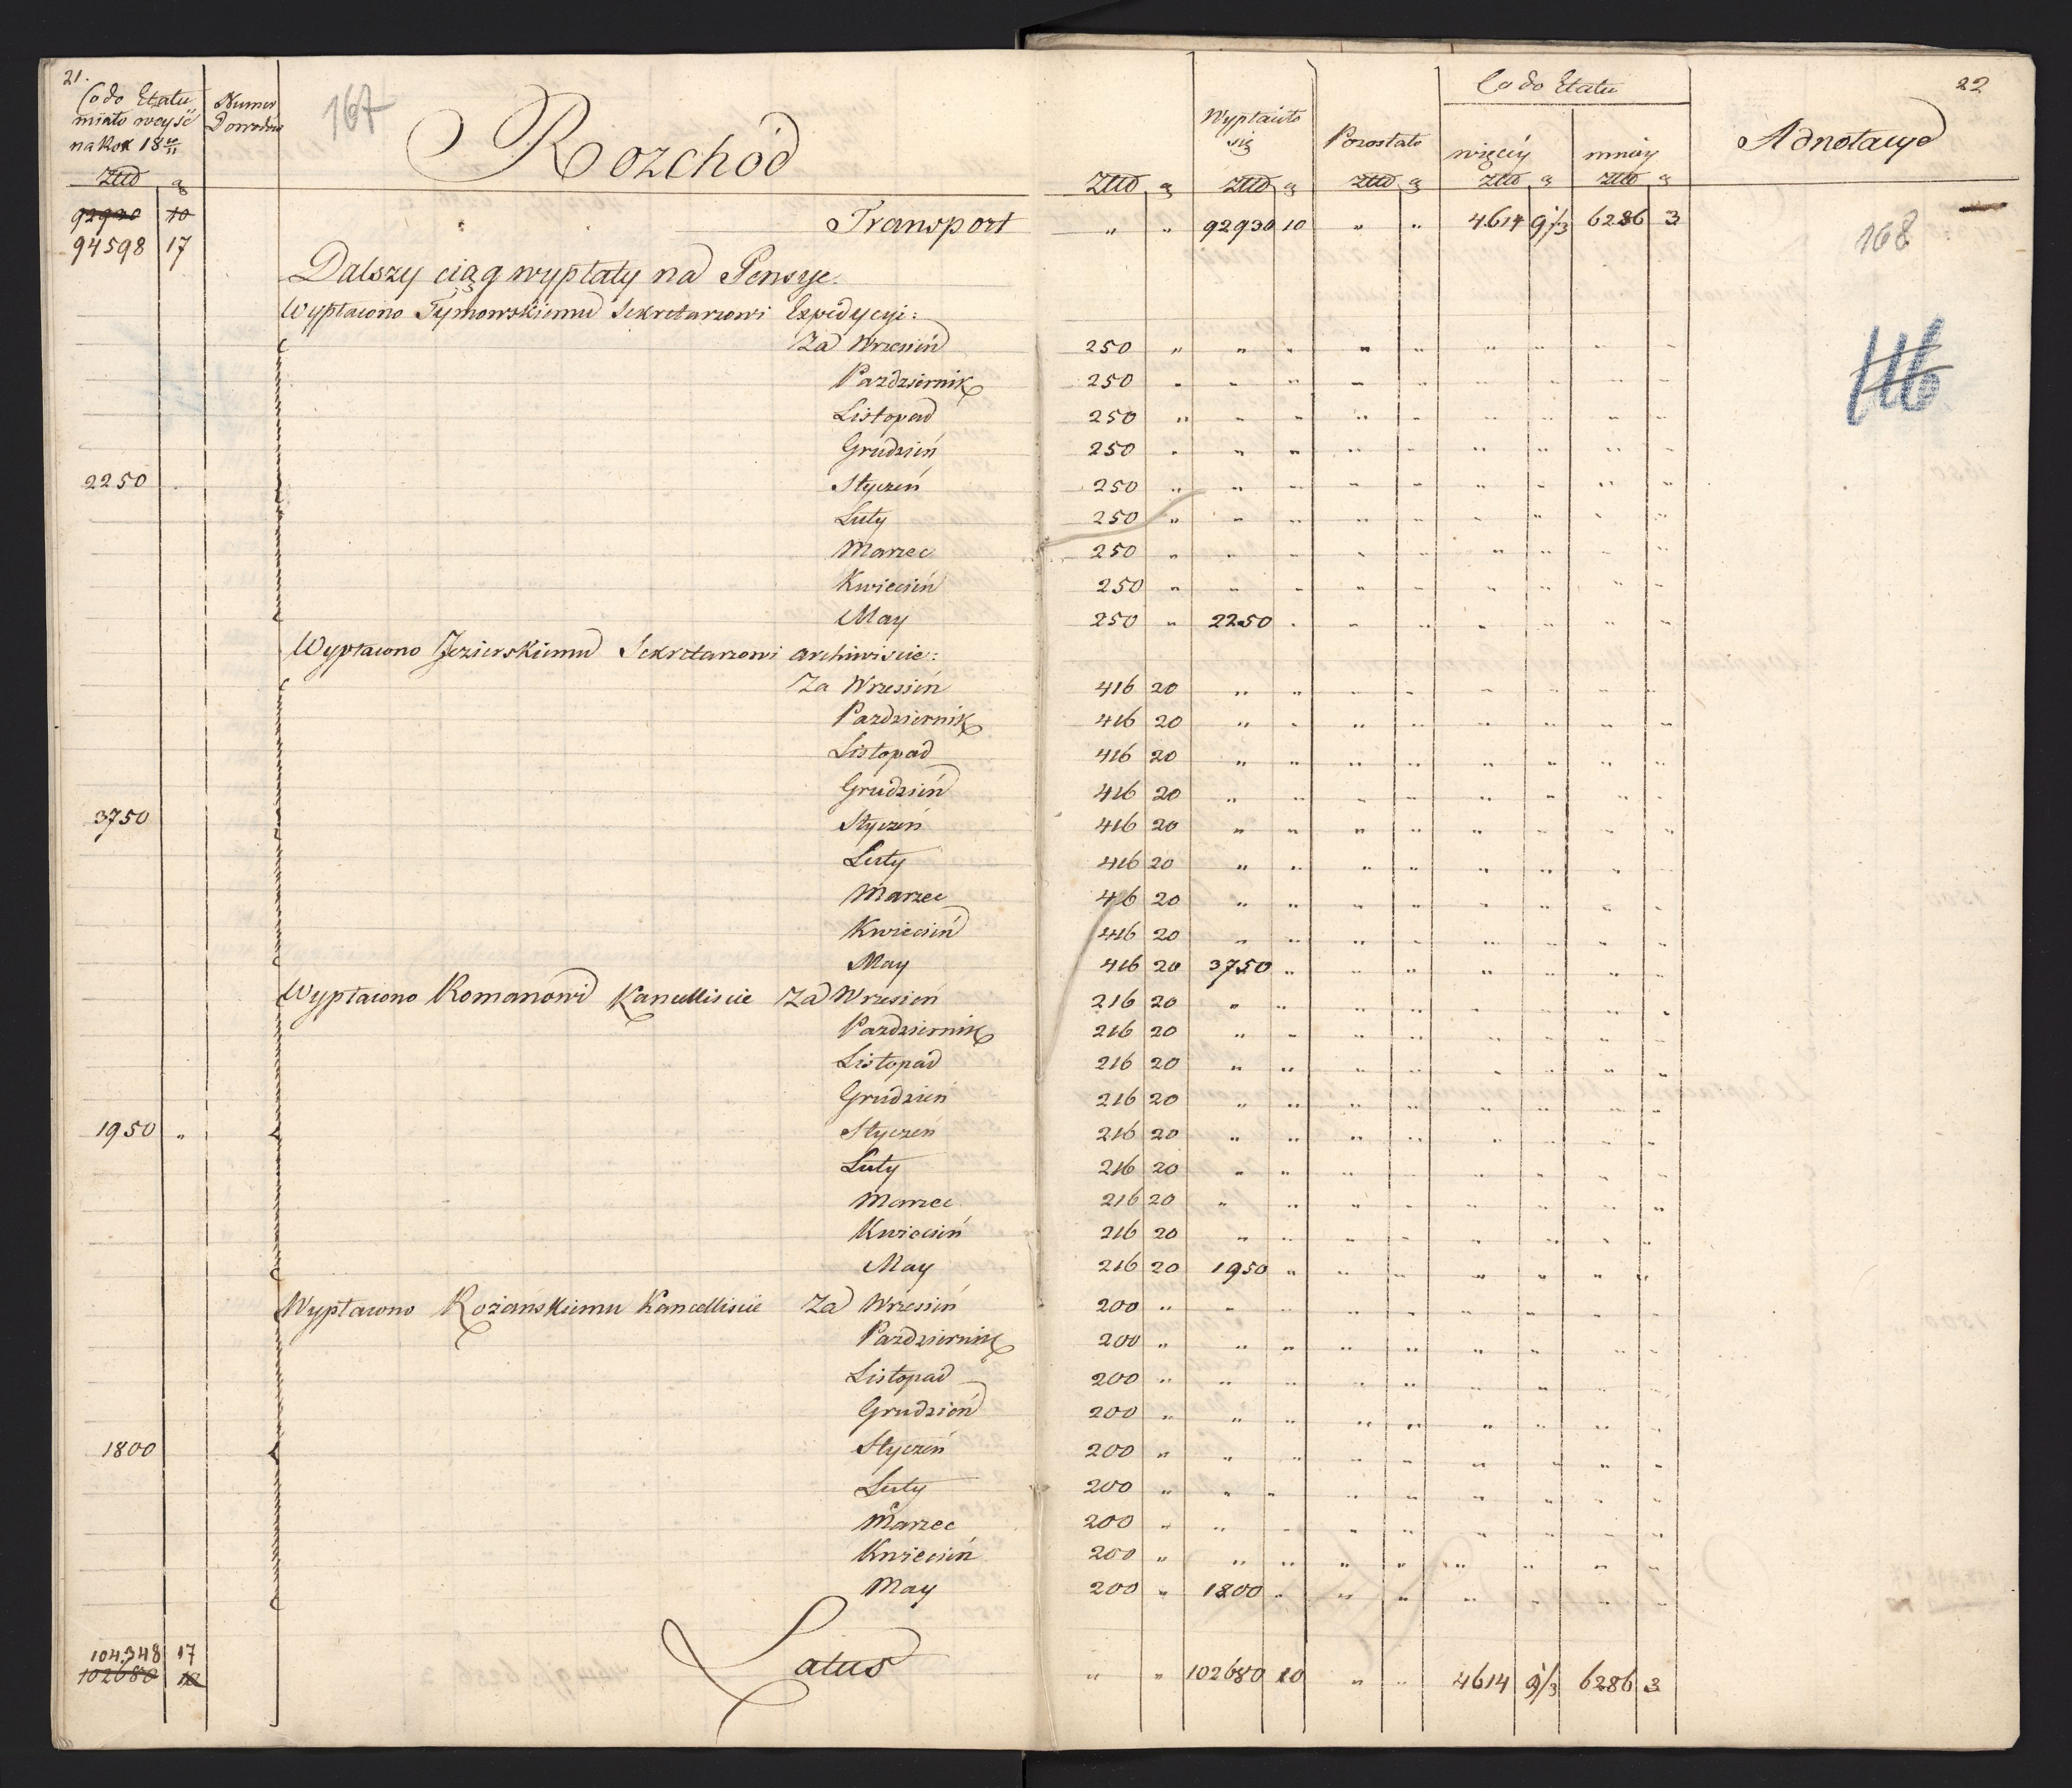 21.
Co do Etatu Numer
miało weyść Dowodów
na Rok 18 10/11
Złło g
167
Rozchód
22
Wypłaciło się Pozostało Co do Etatu więcéy mniéy Adnotacye
Złło g Złło g Złło g Złło g Złło g
92930 10
94598 17
Transport " " 92930 10 " " 4614 9 1/3 6286 3
168
Dalszy ciąg wypłaty na Pensye.
Wypłacono Tymowskiemu Sekretarzowi Expedycyi:
Za Wrzesień 250 "
116
Pazdziernik 250 "
Listopad 250 "
Grudzień 250 "
2250 Styczeń 250 "
Luty 250 "
Marzec 250 "
Kwiecień 250 "
May 250 " 2250
Wypłacono Jezierskiemu Sekretarzowi Archiwiscie:
Za Wrzesień 416 20
Pazdziernik 416 20
Listopad 416 20
Grudzień 416 20
3750 Styczeń 416 20
Luty 416 20
Marzec 416 20
Kwiecień 416 20
May 416 20 3750 "
Wypłacono Romanowi Kancelliscie Za Wrzesień 216 20
Pazdziernik 216 20
Listopad 216 20
Grudzień 216 20
1950 " Styczeń 216 20
Luty 216 20
Marzec 216 20
Kwiecień 216 20
May 216 20 1950 "
Wypłacono Rożańskiemu Kancelliscie Za Wrzesień 200 "
Pazdziernik 200 "
Listopad 200 "
Grudzień 200 "
1800 Styczeń 200 "
Luty 200 "
Marzec 200 "
Kwiecień 200 "
May 200 " 1800 "
104.348 17
102680 10
Latus " " 102680 10 " " 4614 9 1/3 6286 3